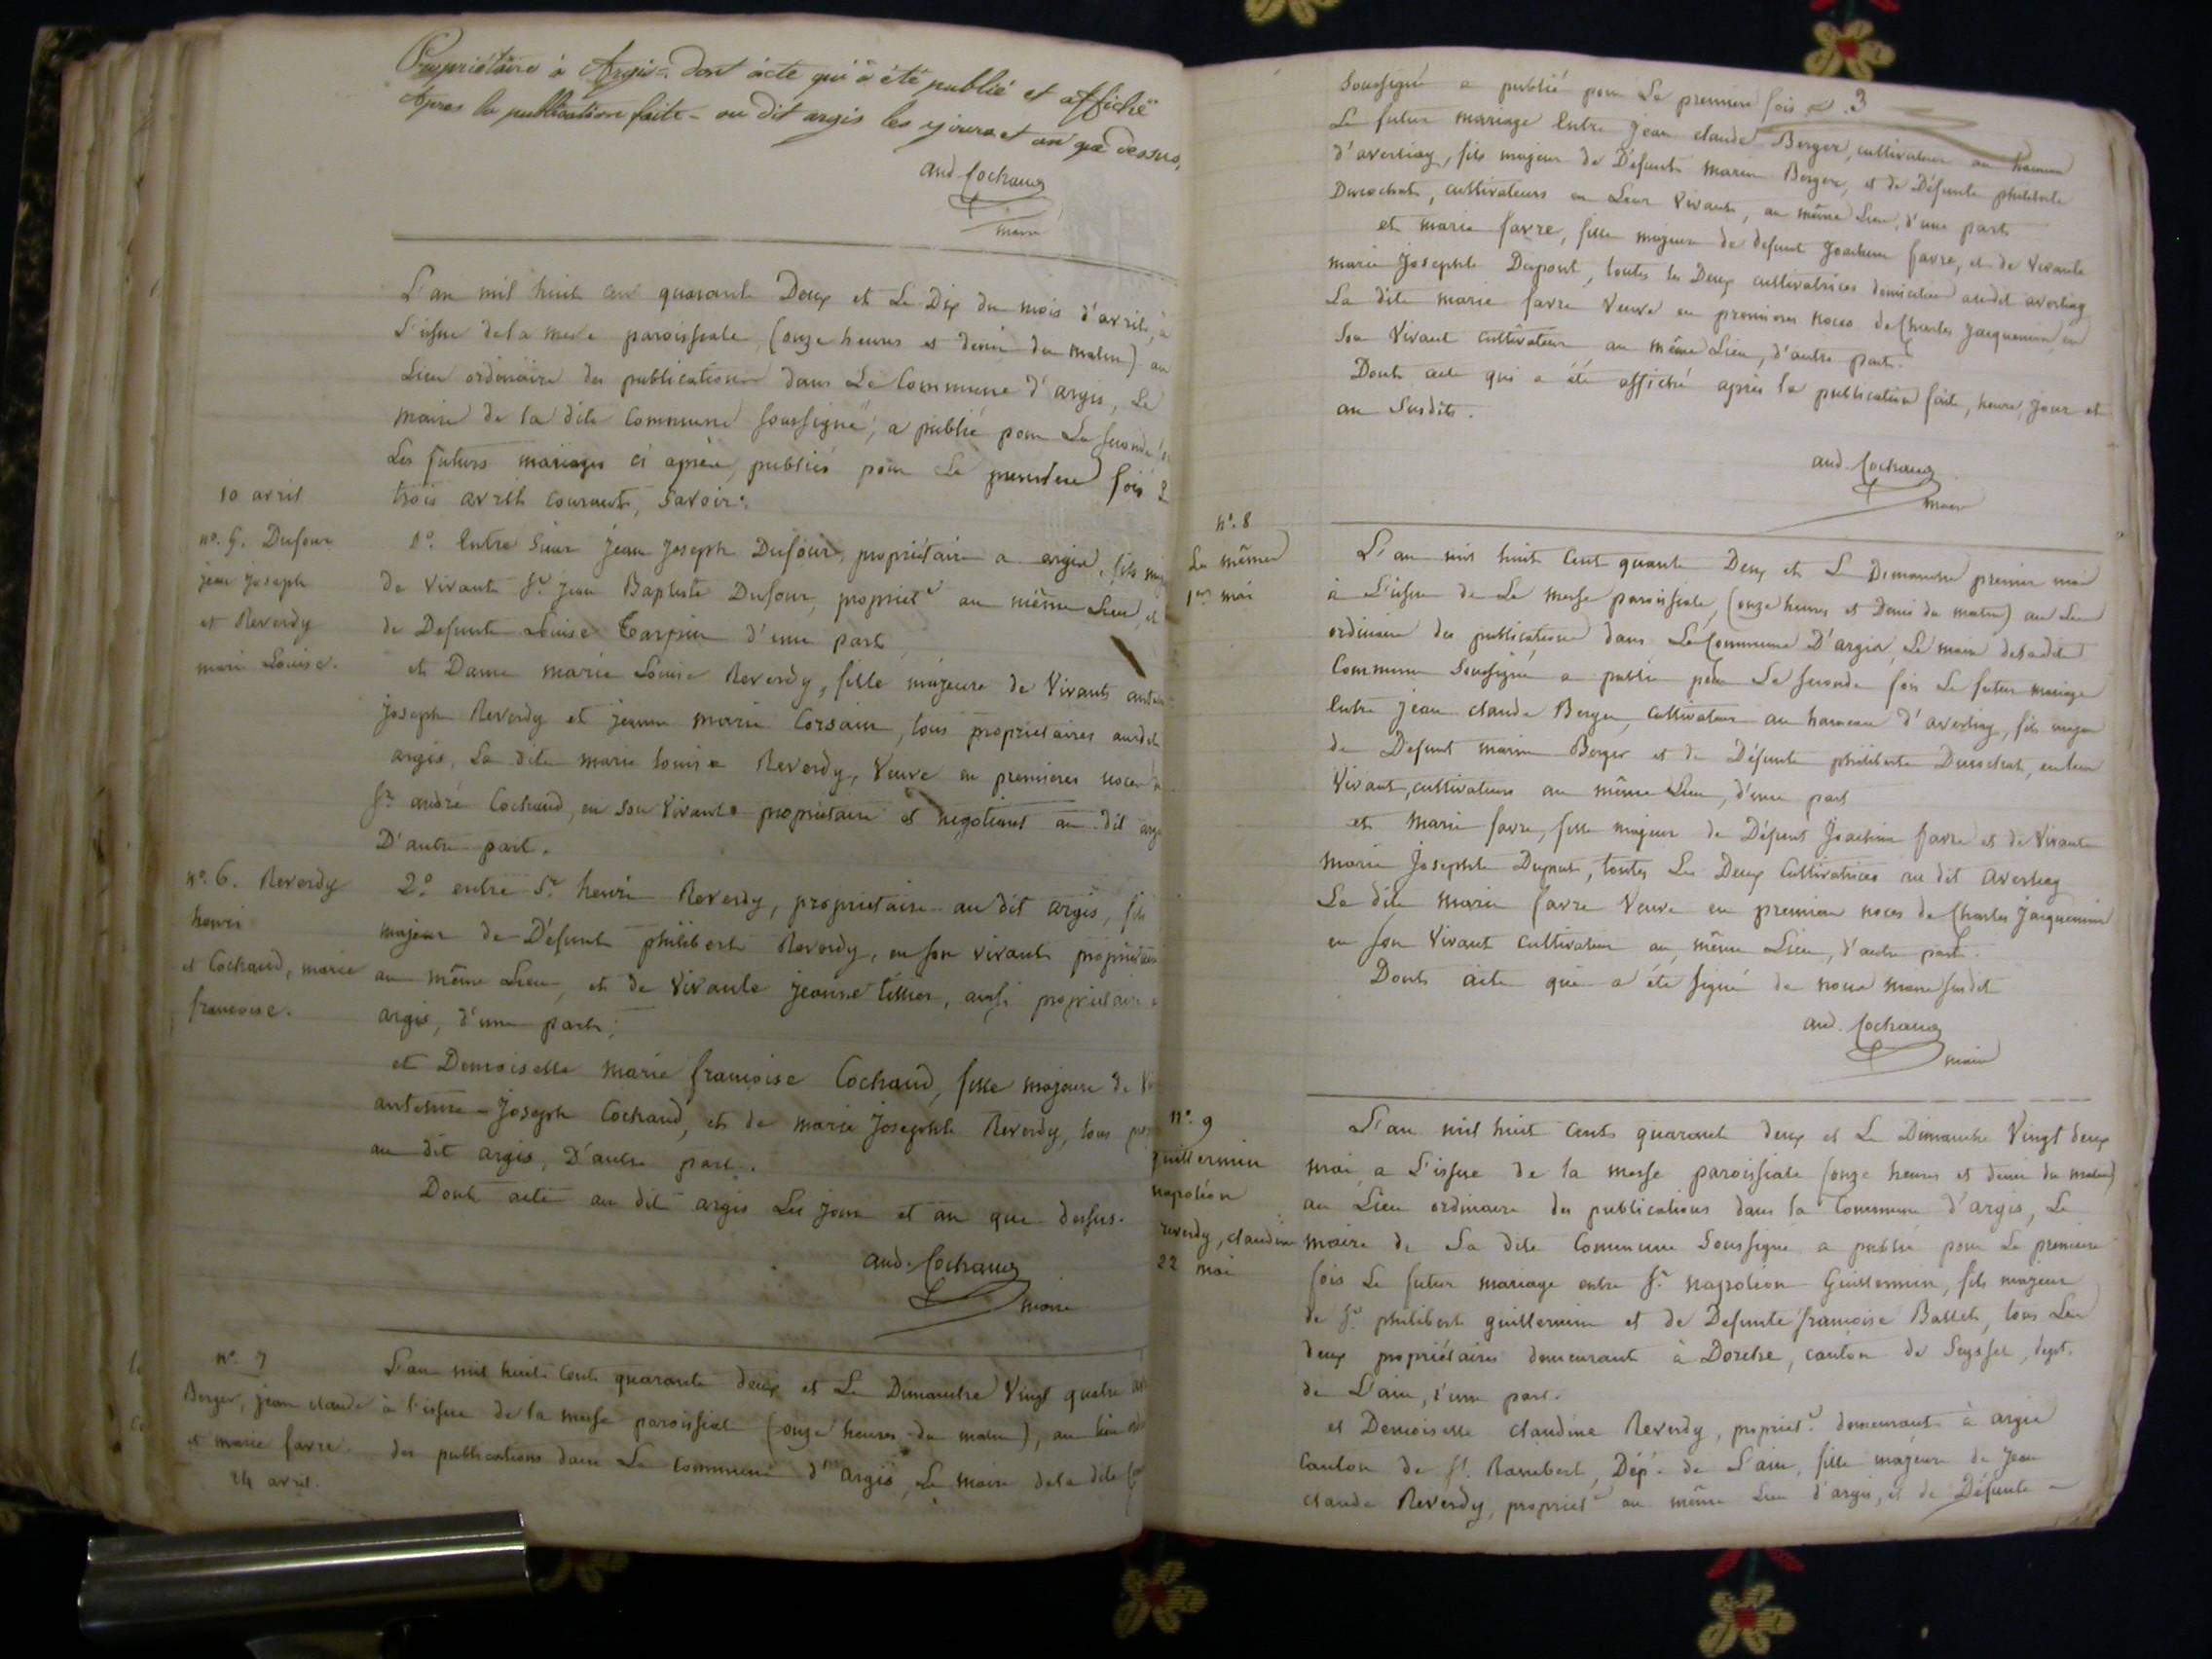 Propriétaire à Argis. dont acte qui à été publié et affiché
Apres la publication faite au dit argis les jour et an que dessus,
and. Cochaud
maire
L'an mil huit cent quarante Deux et Le Dix du mois d'avril, à
L'issue de la messe paroissiale, (onze heures et demie du matin) au
Lieu ordinaire des publications dans La Commune d'argis, Le
maire de la dite Commune soussigné, a publié pour La seconde
Les futurs mariages ci après, publiés pour La premiere fois
10 avril
trois avril courant, Savoir:
n°. 5. Dufour
jean joseph
et Reverdy
marie Louise.
1°. Entre Sieur Jean Joseph Dufour, propriétaire a argis, fils
de Vivant Sr. Jean Baptiste Dufour, propriet. au même Lieu, et
de Defunte Louise Tarpin d'une part
et Dame marie Louise Reverdy, fille majeure de Vivants
joseph Reverdy et jeanne marie Corsain, tous propriétaires audit
argis, La dite marie Louise Reverdy, Veuve en premières noces
Sr. andré Cochaud, en son Vivant propriétaire et négotiant au dit
D'autre part.
n°. 6. Reverdy
henri
et Cochaud, marie
françoise.
2°. entre Sr. henri Reverdy, propriétaire au dit argis, fils
majeur de Défunt philibert Reverdy, en son vivant
au même Lieu, et de Vivante jeanne tillier, aussi propriétaire
argis, d'une part;
et Demoiselle marie françoise Cochaud, fille majeure de
antelme-Joseph Cochaud, et de marie Josephte Reverdy, tous
au dit argis, D'autre part.
Dont acte au dit argis Les jour et an que dessus.
and. Cochaud
maire
n°. 7
Berger, jean claude
et marie favre.
24 avril.
L'an mil huit Cent quarante deux et Le Dimanche Vingt quatre
à l'issue de la messe paroissiale (onze heures du matin), au lieu
des publications dans La Commune d'argis, Le maire de la dite
soussigné a publié pour La premiere fois 3
Le futur mariage Entre jean claude Berger, cultivateur au hameau
d'averliaz, fils majeur de Défunt marin Berger, et de Défunte philiberte
Durochat, cultivateurs en Leur Vivant, au même Lieu, d'une part
et marie favre, fille majeure de défunt Joachim favre, et de Vivante
marie Josephte Dupont, toutes les Deux cultivatrices audit averliaz
La dite marie favre Veuve en premieres noces de Charles Jacquemin, en
son Vivant cultivateur au même Lieu, d'autre part.
Dont acte qui a été affiché après la publication faite, heure, jour et
an Susdits.
and. Cochaud
maire
n°. 8
Les mêmes
1er mai
L'an mil huit Cent quarante Deux et Le Dimanche premier mai
à L'issue de La messe paroissiale, (onze heures et Demie du matin) au Lieu
ordinaire des publications dans La Commune D'argis, Le maire de la dite
Commune Soussigné a publié pour La seconde fois Le futur mariage
Entre jean claude Berger, Cultivateur au hameau d'averliaz, fils majeur
de Défunt marin Berger et de Défunte philiberte Durochat, en leur
Vivant, cultivateurs au même Lieu, d'une part
et Marie favre, fille majeure de Défunt Joachim favre et de Vivante
marie Josephte Dupont, toutes Les Deux Cultivatrices au dit averliaz
La dite marie favre Veuve en premieres noces de Charles Jacquemin
en son Vivant Cultivateur au même Lieu, d'autre part.
Dont acte qui a été signé de nous maire susdit
and. Cochaud
maire
n°. 9
guillermin
napoléon
reverdy, claudine
22 mai
L'an mil huit Cent quarante deux et Le Dimanche Vingt deux
mai a L'issue de la messe paroissiale (onze heures et demie du matin)
au Lieu ordinaire des publications dans la Commune d'argis, Le
maire de La dite Commune Soussigné, a publié pour La premiere
fois Le futur mariage entre Sr. napoléon Guillermin, fils majeur
de Sr. philibert guillermin et de Defunte françoise Ballet, tous Les
deux propriétaires demeurant à Dorche, canton de Seyssel, dept.
de L'ain, d'une part.
et Demoiselle claudine Reverdy, propriet. demeurant à argis
Canton de St. Rambert, Dép. de L'ain, fille majeure de Jean
claude Reverdy, propriet. au même Lieu d'argis, et de Défunte